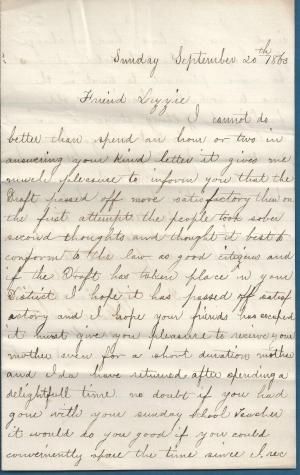 Sunday September 20th 1863
Friend Lizzie
I cannot do
better than spend an hour or two in
answering your kind letter it gives me
much pleasure to inform you that the
Draft passed off more satisfactory then on
the first attempt the people took sober
second thoughts and thought it best to
conform to the law as good citizens and
if the Draft has taken place in your
District I hope it has passed off satisf
actory and I hope your friends has escaped
it must give you pleasure to receive your
mother even for a short duration mother
and Ida have returned after spending a
delightfull time no doubt if you had
gone with your sunday School Teacher
it would do you good if you could
conveniently spare the time since I rec